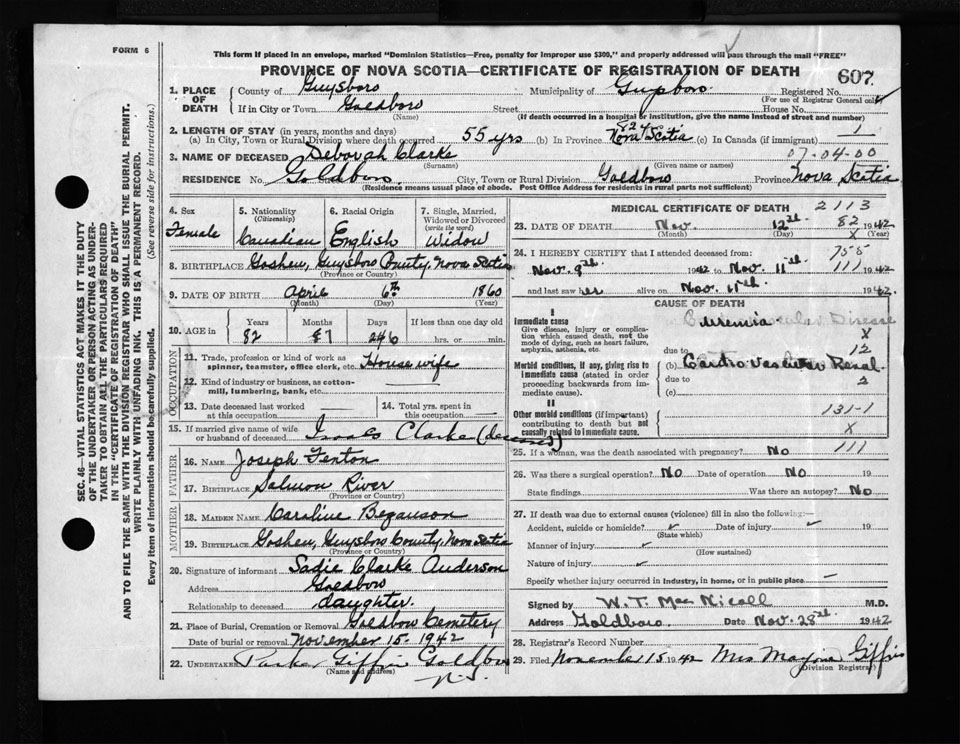 FORM 6
This form if placed in an envelope, marked "Dominion Statistics—Free, penalty for improper use $300," and properly addressed will pass through the mail "FREE"
PROVINCE OF NOVA SCOTIA—CERTIFICATE OF REGISTRATION OF DEATH
607
1. PLACE OF DEATH
County of Guysboro Municipality of Registered No.
(For use of Registrar General only)
If in City or Town Goldboro Street House No.
(Name) (If death occurred in a hospital or institution, give the name instead of street and number)
2. LENGTH OF STAY (in years, months and days)
(a) In City, Town or Rural Division where death occurred 55 yrs (b) In Province Nova Scotia (c) In Canada (if immigrant) 1
3. NAME OF DECEASED Deborah Clarke 07-04-00
(Surname) (Given name or names)
RESIDENCE No. Goldboro City, Town or Rural Division Goldboro Province Nova Scotia
(Residence means usual place of abode. Post Office Address for residents in rural parts not sufficient)
4. Sex Female
5. Nationality (Citizenship) Canadian
6. Racial Origin English
7. Single, Married, Widowed or Divorced (write the word) Widow
8. BIRTHPLACE Goshen, Guysboro County, Nova Scotia
(Province or Country)
9. DATE OF BIRTH April 6th 1860
(Month) (Day) (Year)
10. AGE in Years Months Days If less than one day old
82 7 hrs. or min.
OCCUPATION
11. Trade, profession or kind of work as spinner, teamster, office clerk, etc. Housewife
12. Kind of industry or business, as cotton-mill, lumbering, bank, etc.
13. Date deceased last worked at this occupation
14. Total yrs. spent in this occupation
15. If married give name of wife or husband of deceased Clarke (deceased)
FATHER
16. NAME Joseph Fenton
17. BIRTHPLACE Salmon River
(Province or Country)
MOTHER
18. MAIDEN NAME Caroline
19. BIRTHPLACE Goshen, Guysboro County, Nova Scotia
(Province or Country)
20. Signature of informant Sadie Clarke Anderson
Address Goldboro
Relationship to deceased daughter.
21. Place of Burial, Cremation or Removal Goldboro Cemetery
Date of burial or removal November 15-1942
22. UNDERTAKER Parker Giffin Goldboro
(Name and address)
N.S.
MEDICAL CERTIFICATE OF DEATH 2113
23. DATE OF DEATH Nov. 12th 82 1942
(Month) (Day) X (Year)
24. I HEREBY CERTIFY that I attended deceased from: 755
Nov. 9th 1942 to Nov. 11th 111 1942
and last saw her alive on Nov. 11th 1942.
CAUSE OF DEATH
I
Immediate cause
Give disease, injury or complication which caused death, not the mode of dying, such as heart failure, asphyxia, asthenia, etc.
Uremia
X
due to 12
Morbid conditions, if any, giving rise to immediate cause (stated in order proceeding backwards from immediate cause).
(b) Cardio Vascular Renal
due to 2
(c)
II
Other morbid conditions (if important) contributing to death but not causally related to immediate cause.
131-1
X
25. If a woman, was the death associated with pregnancy? No 111
26. Was there a surgical operation? No Date of operation No 19
State findings Was there an autopsy? No
27. If death was due to external causes (violence) fill in also the following:—
Accident, suicide or homicide? ✓ Date of injury ✓ 19
(State which)
Manner of injury ✓
(How sustained)
Nature of injury ✓
Specify whether injury occurred in industry, in home, or in public place —
Signed by W. T. MacNicoll M.D.
Address Goldboro. Date Nov. 28th 1942
28. Registrar's Record Number
29. Filed November 15 1942 Mrs Giffin
(Division Registrar)
SEC. 46—VITAL STATISTICS ACT MAKES IT THE DUTY
OF THE UNDERTAKER OR PERSON ACTING AS UNDER-
TAKER TO OBTAIN ALL THE PARTICULARS REQUIRED
IN THE "CERTIFICATE OF REGISTRATION OF DEATH"
AND TO FILE THE SAME WITH THE DIVISION REGISTRAR WHO SHALL ISSUE THE BURIAL PERMIT.
WRITE PLAINLY WITH UNFADING INK. THIS IS A PERMANENT RECORD.
Every item of information should be carefully supplied. (See reverse side for instructions.)